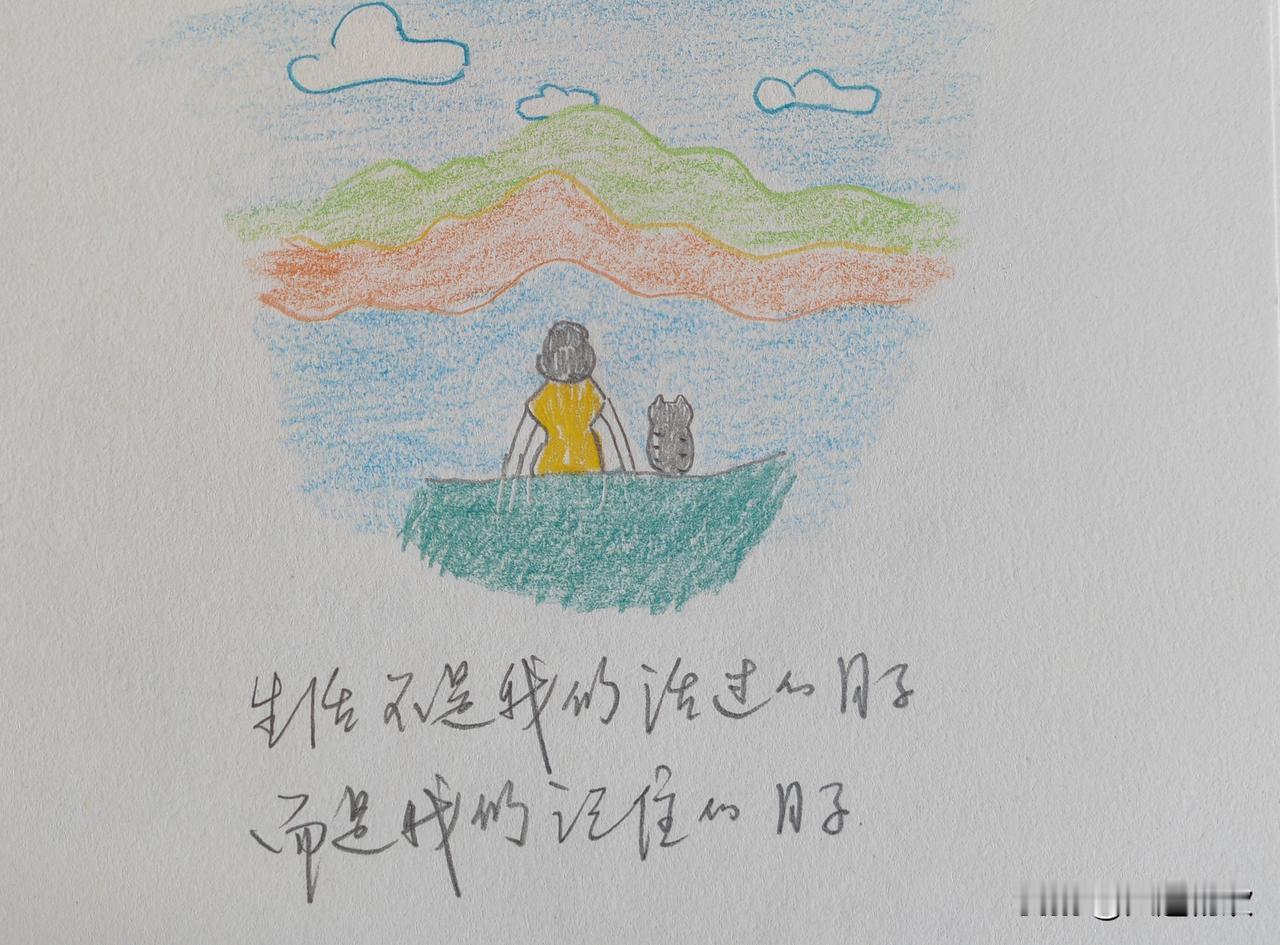 生活不是我们活过的日子
而是我们记住的日子.